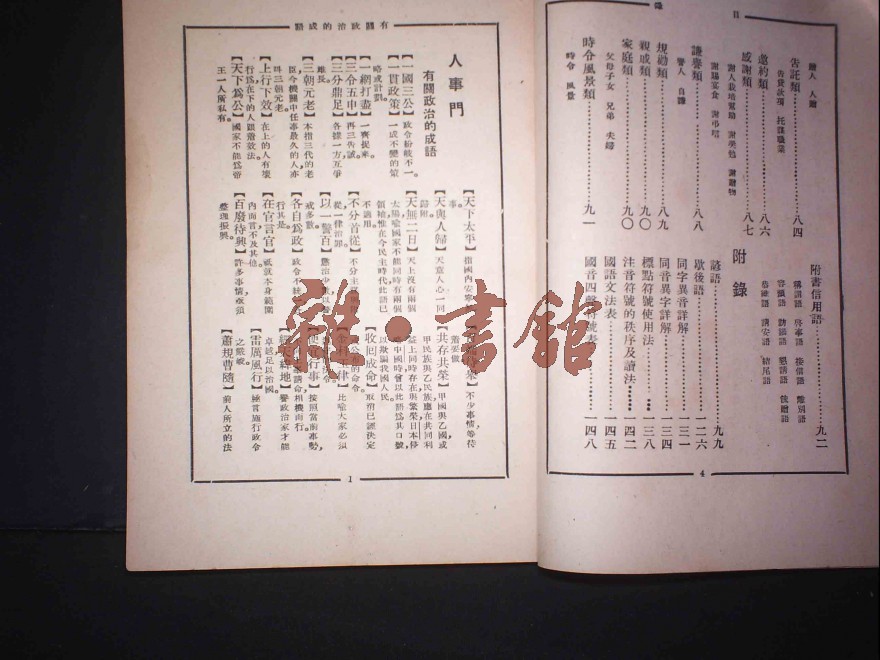 目 錄
贈人 人贈
告託類……八四
告貸款項 託謀職業
邀約類……八六
感謝類……八七
謝人栽培幫助 謝獎勉 謝贈物
謝賜宴食 謝弔唁
謙譽類……八八
譽人 自謙
規勸類……八九
親戚類……九〇
家庭類……九〇
父母子女 兄弟 夫婦
時令風景類……九一
時令 風景
附書信用語……九二
稱謂語 啓事語 接信語 離別語
附錄
諺語……九九
歇後語……一二六
同字異音詳解……一三一
同音異字詳解……一三四
標點符號使用法……一三八
注音符號的秩序及讀法……一四二
國語文法表……一四五
國音四聲符號表……一四八
4
有關政治的成語
人事門
有關政治的成語
【一國三公】政令紛岐不一。
【一貫政策】一成不變的策
略或計劃。
【一網打盡】一齊捉來。
【三令五申】再三告誡。
【三分鼎足】各據一方互爭
雄長。
【三朝元老】本指三代的老
臣今機關中任事最久的人亦
叫三朝元老。
【上行下效】在上的人有壞
行爲在下的人跟着效法。
【天下爲公】國家不能爲帝
王一人所私有。
【天下太平】指國內安寧
事。
【天與人歸】天意人心一同
歸附。
【天無二日】天上沒有兩個
太陽喻國家不能同時有兩個
領袖惟在今民主時代此語已
不適用。
【不分首從】不分主
從一律治罪
【以一警百】懲治少
戒多數。
【各自爲政】政令不統
行其是。
【在官言官】祇就本身範圍
內而言不及其他。
【百廢待興】許多事情亟須
整理振興。
不少事情等待
着要做
【共存共榮】甲國與乙國或
甲民族與乙民族應在共同利
益上同時存在與繁榮日本侵
略中國時曾以此語爲其口號
以欺騙我國人民
【收回成命】取消已經決定
公布的命令。
比喻大家必須
按照當前事勢
請命相機而行。
譽政治家才能
卓越足以治國。
【雷厲風行】極言施行政令
之嚴峻。
【蕭規曹隨】前人所立的法
1
雜·書館